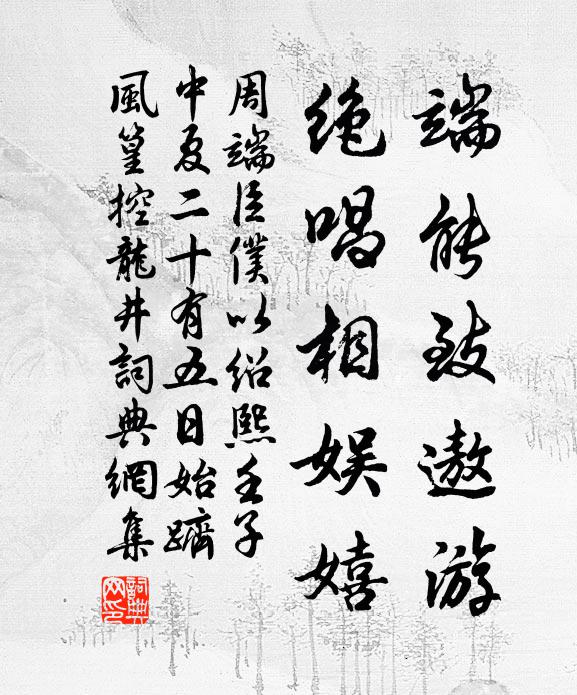 端能致遨游
絶唱相娱嬉
周端臣僕以紹熙壬子
中夏二十有五日始躋
風篁控龍井詞典網集
詞典
网印